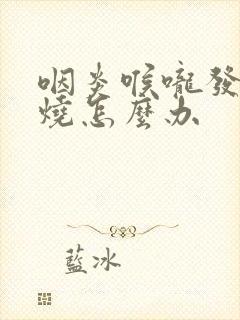 咽炎喉嚨發
燒怎麼办
藍冰